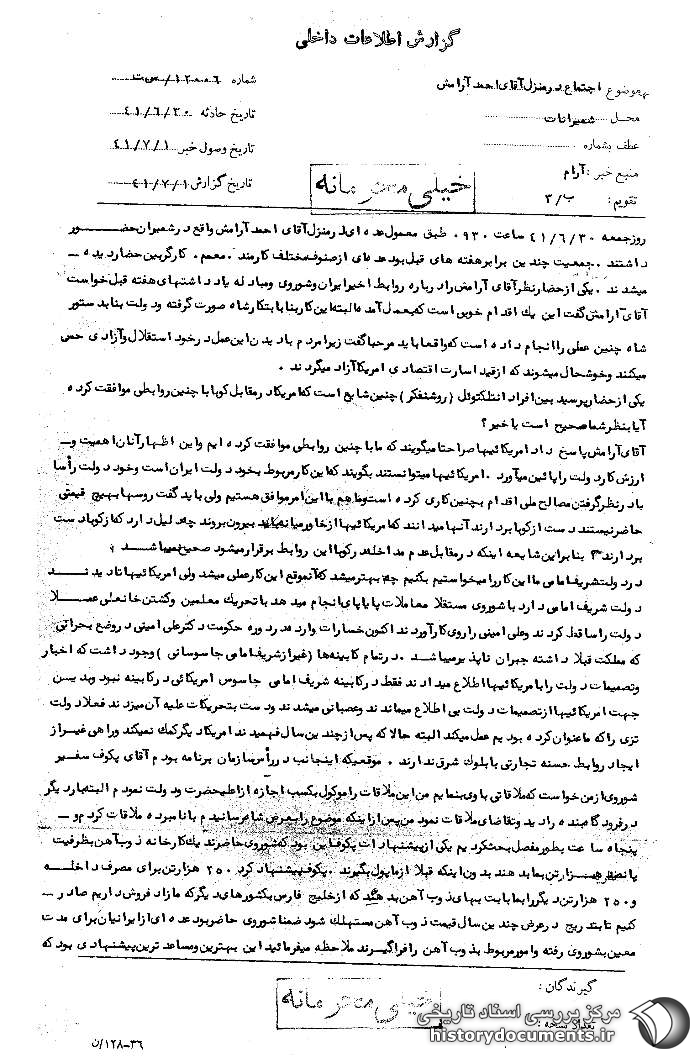 گزارش اطلاعات داخلی
بموضوع: اجتماع در منزل آقای احمد آرامش
شماره ۱۲۰۰۶/س‌ت
محل: شمیرانات
تاریخ حادثه ۴۱/۶/۳۰
عطف بشماره
تاریخ وصول خبر ۴۱/۷/۱
منبع خبر: آرام
تاریخ گزارش ۴۱/۷/۱
تقویم: ب/۳
خیلی محرمانه
روز جمعه ۴۱/۶/۳۰ ساعت ۹۳۰ طبق معمول عده‌ای در منزل آقای احمد آرامش واقع در شمیران حضور
داشتند. جمعیت چندین برابر هفته های قبل بود عده‌ای از صنوف مختلف کارمند. معمم. کارگر بین حضار دیده
میشدند. یکی از حضار نظر آقای آرامش را درباره روابط اخیر ایران و شوروی و مبادله یادداشتهای هفته قبل خواست
آقای آرامش گفت این یک اقدام خوبی است که بعمل آمده البته این کار بنا بابتکار شاه صورت گرفته و دولت بنا بدستور
شاه چنین عملی را انجام داده است که واقعا باید مرحبا گفت زیرا مردم با دیدن این عمل در خود استقلال و آزادی حس
میکنند و خوشحال میشوند که از قید اسارت اقتصادی امریکا آزاد میگردند.
یکی از حضار پرسید بین افراد انتلکتوئل (روشنفکر) چنین شایع است که امریکا در مقابل کوبا با چنین روابطی موافقت کرده
آیا بنظر شما صحیح است یا خیر؟
آقای آرامش پاسخ داد امریکائیها صراحتا میگویند که ما با چنین روابطی موافقت کرده ایم و این اظهار آنان اهمیت و
ارزش کار دولت را پائین میآورد. امریکائیها میتوانستند بگویند که این کار مربوط بخود دولت ایران است و خود دولت رأسا
با در نظر گرفتن مصالح ملی اقدام بچنین کاری کرده است و ما هم با این امر موافق هستیم ولی باید گفت روسها بهیچ قیمتی
حاضر نیستند دست از کوبا بردارند آنها میدانند که امریکائیها از خاورمیانه بیرون بروند چه دلیل دارد که از کوبا دست
بردارند؟ بنابراین شایعه اینکه در مقابل عدم مداخله در کوبا این روابط برقرار میشود صحیح نمیباشد
در دولت شریف امامی ما این کار را میخواستیم بکنیم چه بهتر میشد که آنموقع این کار عملی میشد ولی امریکائیها تا دیدند
دولت شریف امامی دارد با شوروی مستقلا معاملات پایاپای انجام میدهد با تحریک معلمین و کشتن خانعلی عملا
دولت را ساقط کردند و علی امینی را روی کار آوردند اکنون خسارات وارده در دوره حکومت دکتر علی امینی در وضع بحرانی
که مملکت قبلا داشته جبران ناپذیر میباشد. در تمام کابینه‌ها (غیر از شریف امامی جاسوسانی) وجود داشت که اخبار
و تصمیمات دولت را بامریکائیها اطلاع میدادند فقط در کابینه شریف امامی جاسوس امریکائی در کابینه نبود و بدین
جهت امریکائیها از تصمیمات دولت بی اطلاع میماندند و عصبانی میشدند و دست بتحریکات علیه آن میزدند فعلا دولت
تزی را که ما عنوان کرده بودیم عمل میکند البته حالا که پس از چندین سال فهمیدند امریکا دیگر کمک نمیکند و راهی غیر از
ایجاد روابط حسنه تجارتی با بلوک شرق ندارند. موقعیکه اینجانب در رأس سازمان برنامه بودم آقای پکوف سفیر
شوروی از من خواست که ملاقاتی با وی بنمایم من این ملاقات را موکول بکسب اجازه از اعلیحضرت و دولت نمودم البته بار دیگر
در فرودگاه بنده را دید و تقاضای ملاقات نمود من پس از اینکه موضوع را بعرض شاه رسانیدم با نامبرده ملاقات کردم و
پنجاه ساعت بطور مفصل بحث کردیم یکی از پیشنهادات پکوف این بود که شوروی حاضرند یک کارخانه ذوب آهن بظرفیت
پانصد هزار تن بما بدهند بدون اینکه قبلا از ما پول بگیرند. پکوف پیشنهاد کرد ۲۵۰ هزار تن برای مصرف داخله
و ۲۵۰ هزار تن دیگر را بابت بهای ذوب آهن بدهند که از خلیج فارس بکشورهای دیگر که مازاد فروش داریم صادر
کنیم تا بتدریج در عرض چندین سال قیمت ذوب آهن مستهلک شود ضمنا شوروی حاضر بود عده ای از ایرانیان برای مدت
معین بشوروی رفته و امور مربوط بذوب آهن را فراگیرند ملاحظه میفرمائید این بهترین و مساعد ترین پیشنهادی بود که
گیرندگان:
خیلی محرمانه
تعداد نسخه:
مرکز بررسی اسناد تاریخی
historydocuments.ir
۳۶-۱۲۸/ن